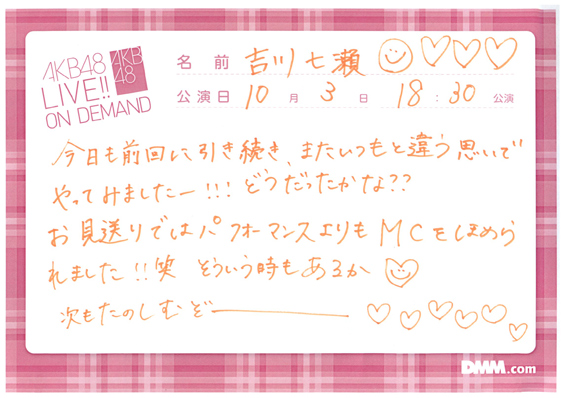 AKB48
LIVE!!
ON DEMAND
AKB
48
名前 吉川七瀬
公演日 10月3日 18:30公演
今日も前回に引き続き、またいつもと違う思いで
やってみましたー!!! どうだったかな??
お見送りではパフォーマンスよりもMCをほめら
れました!!笑 そういう時もあるか
次もたのしむぞー
DMM.com